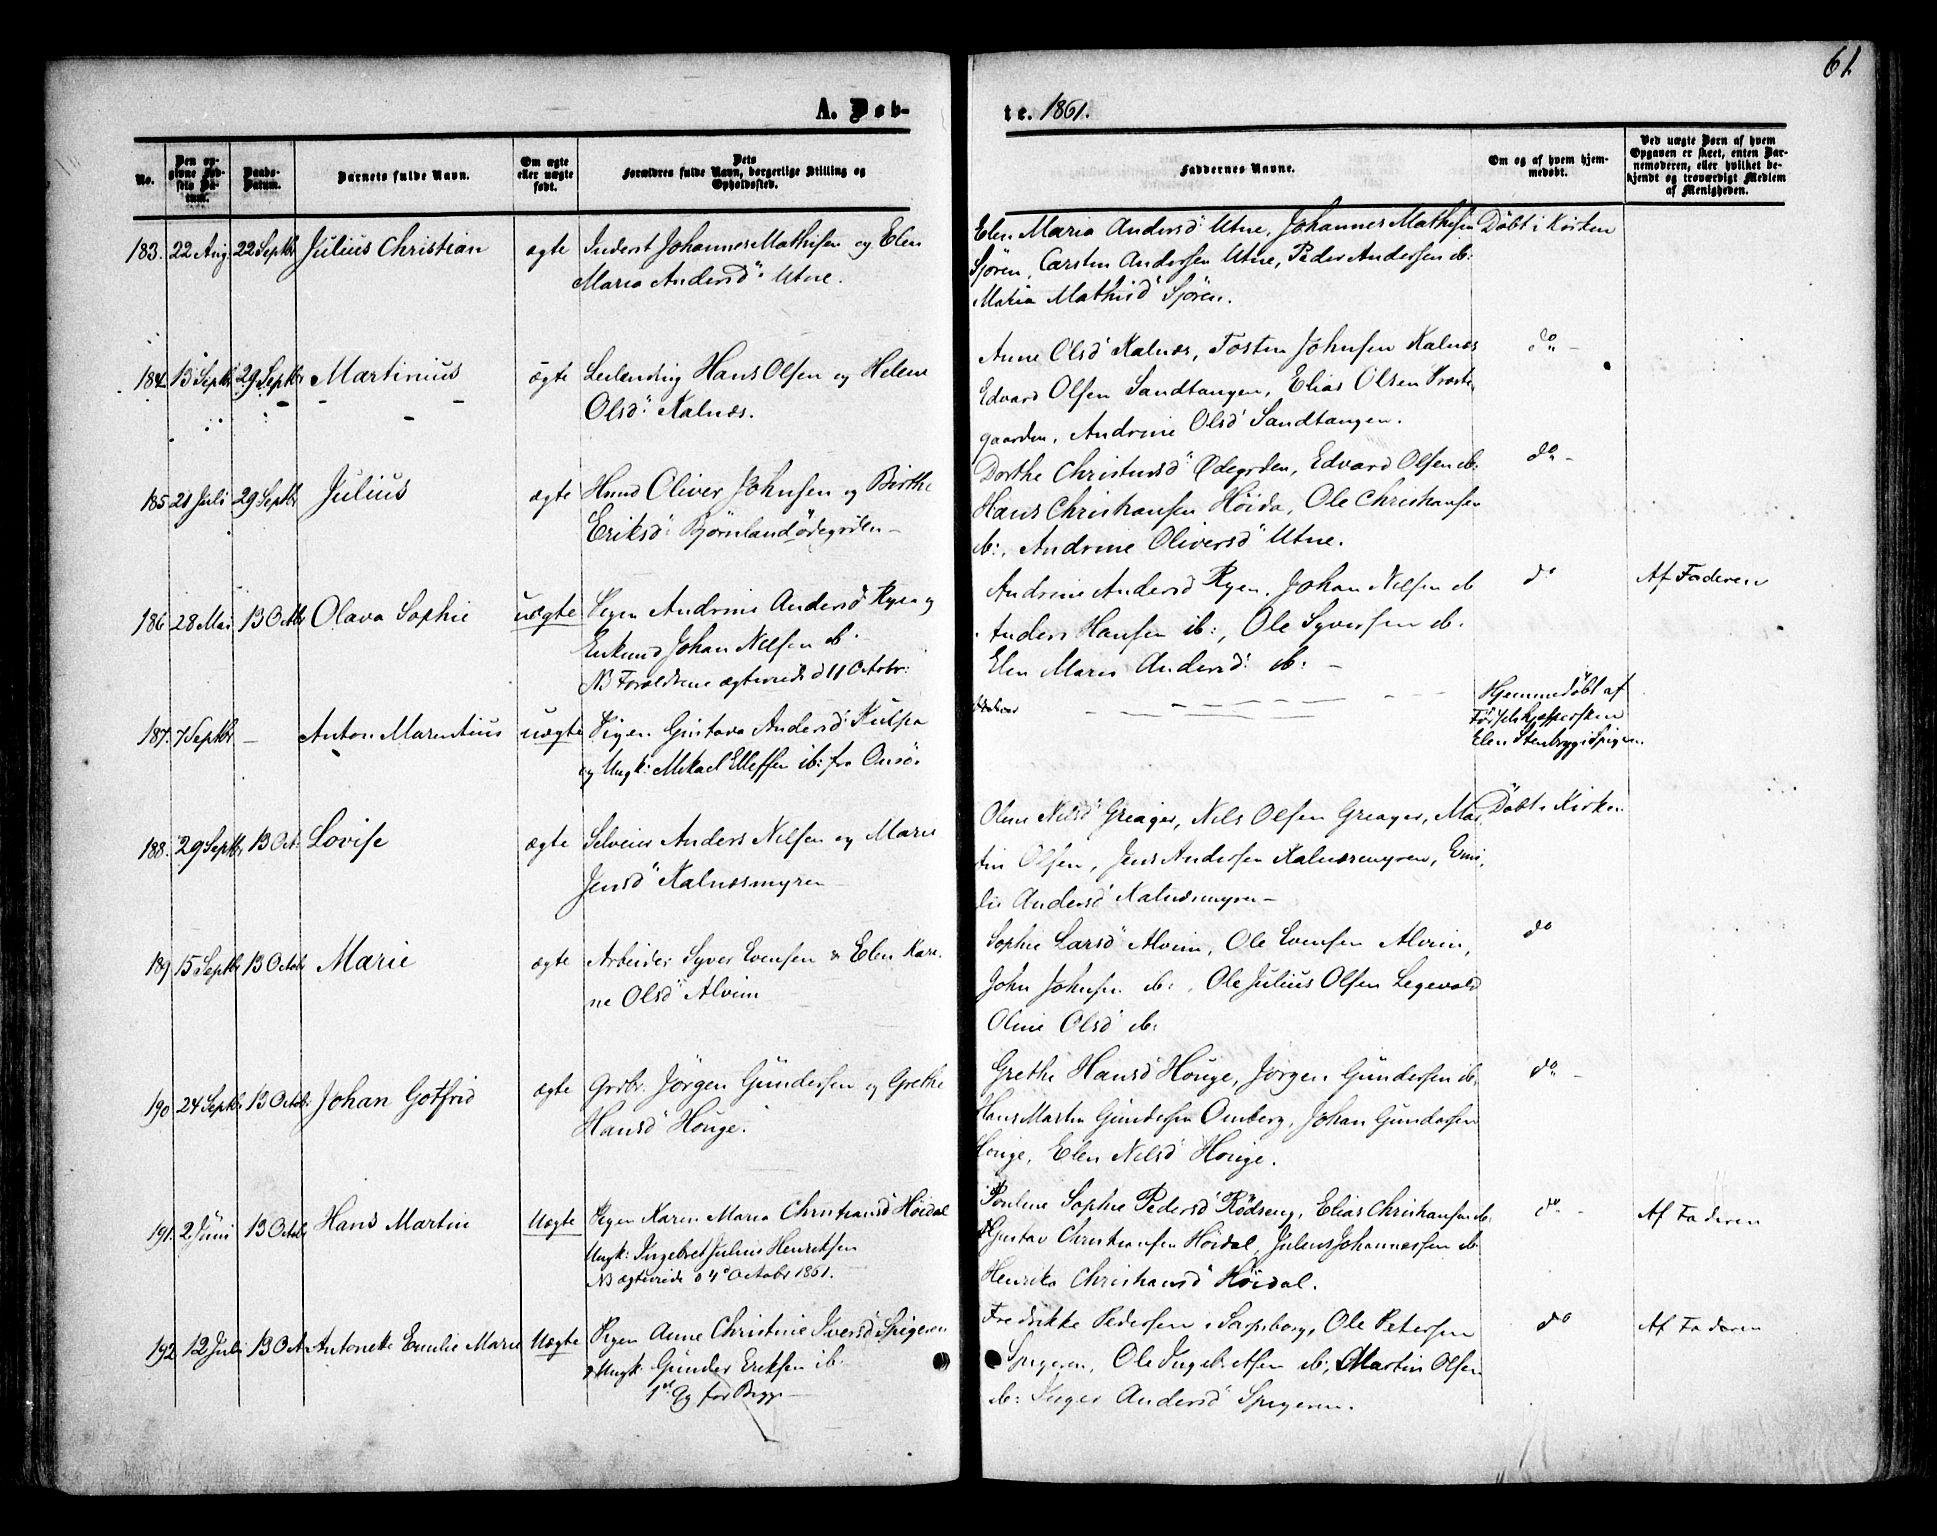 61
A. Døb-
te. 1861.
No.
Den opgivne Fødsels Datum.
Daabs-Datum.
Barnets fulde Navn.
Om ægte eller uægte født.
Dets Forældres fulde Navn, borgerlige Stilling og Opholdssted.
Faddernes Navne.
Om og af hvem hjemmedøbt.
Ved uægte Børn af hvem Opgaven er skeet, enten Barnemoderen, eller hvilket bekjendt og troværdigt Medlem af Menigheden.
183. 22 Aug. 22 Septbr Julius Christian ægte Inderst Johannes Mathisen og Elen
Maria Andersd: Utne.
Elen Maria Andersd Utne, Johannes Mathisen Døbt i Kirken
Sjøren, Carsten Andersen Utne, Peder Andersen ib:
Maria Mathisd Sjøren.
184. 13 Septbr 29 Septbr Martinius ægte Leilending Hans Olsen og Helene
Olsd: Kalnæs.
Anne Olsd Kalnæs, Tosten Johnsen Kalnæs do -
Edvard Olsen Sandtangen, Elias Olsen Præste
gaarden, Andrine Olsd Sandtangen.
185 21 Juli 29 Septbr Julius ægte Hmd Oliver Johnsen og Birthe
Eriksd: Bjørnlandødegrden -
Dorthe Christensd Ødegrden, Edvard Olsen ib: do -
Hans Christiansen Høida, Ole Christiansen
ib:, Andrine Oliversd Utne.
186 28 Mai 13 Octbr Olava Sophie uægte Pigen Andrine Andersd Ryen og
Enkemd Johan Nilsen ib.
NB Forældrene ægteviede d 11 Octobr:
Andrine Andersd Ryen, Johan Nilsen ib do Af Faderen
Anders Hansen ib:, Ole Syversen ib.
Elen Marie Andersd: ib: -
187. 7 Septbr - Anton Marentius uægte Pigen Gustava Andersd: Kulpa
og Ungk: Mikael Elleffsen ib: fra Onsö.
Hjemmedøbt af
Fødselshjelpersken
Elen Stenbrygg i Spigeren.
188. 29 Septbr 13 Oct. Lovise ægte Selveier Anders Nilsen og Marie
Jensd Kalnæsmyren -
Oline Nilsd Greager, Nils Olsen Greager, Mar Døbt i Kirken
tin Olsen, Jens Andersen Kalnæsmyren, Emi
lie Andersd Kalnæsmyren -
189 15 Septbr 13 Octobr Marie ægte Arbeider Syver Evensen & Elen Kare
ne Olsd Alvim
Sophie Larsd Alvim, Ole Evensen Alvim, do
John Johnsen ib:, Ole Julius Olsen Legevold
Oline Olsd ib:
190 24 Septbr 13 Octobr: Johan Gotfrid ægte Grdbr. Jörgen Gundersen og Grethe
Hansd Houge.
Grethe Hansd Houge, Jörgen Gundersen ib: do -
Hans Martin Gundersen Omberg, Johan Gundersen
Houge, Elen Nilsd Houge.
191. 2 Juni 13 Octob Hans Martin Uægte Pigen Karen Maria Christiansd Höidal
Ungk: Ingebret Julius Henriksen
NB ægteviede d 4de Octobr 1861.
Pouline Sophie Pedersd Rödseng, Elias Christiansen ib: do - Af Faderen
Gustav Christiansen Höidal, Julius Johannessen ib
Henrika Christiansd Höidal.
192 12 Juli 13 Oct. Antonette Emilie Marie Uægte Pigen Anne Christine Iversd Spigeren
& Ungk Gunder Eriksen ib.
1st Gg for Begge -
Fredrikke Pedersen i Sarpsborg, Ole Petersen do Af Faderen
Spigeren, Ole Ingebretsen ib:, Martin Olsen
ib: Inger Andersd Spigeren.